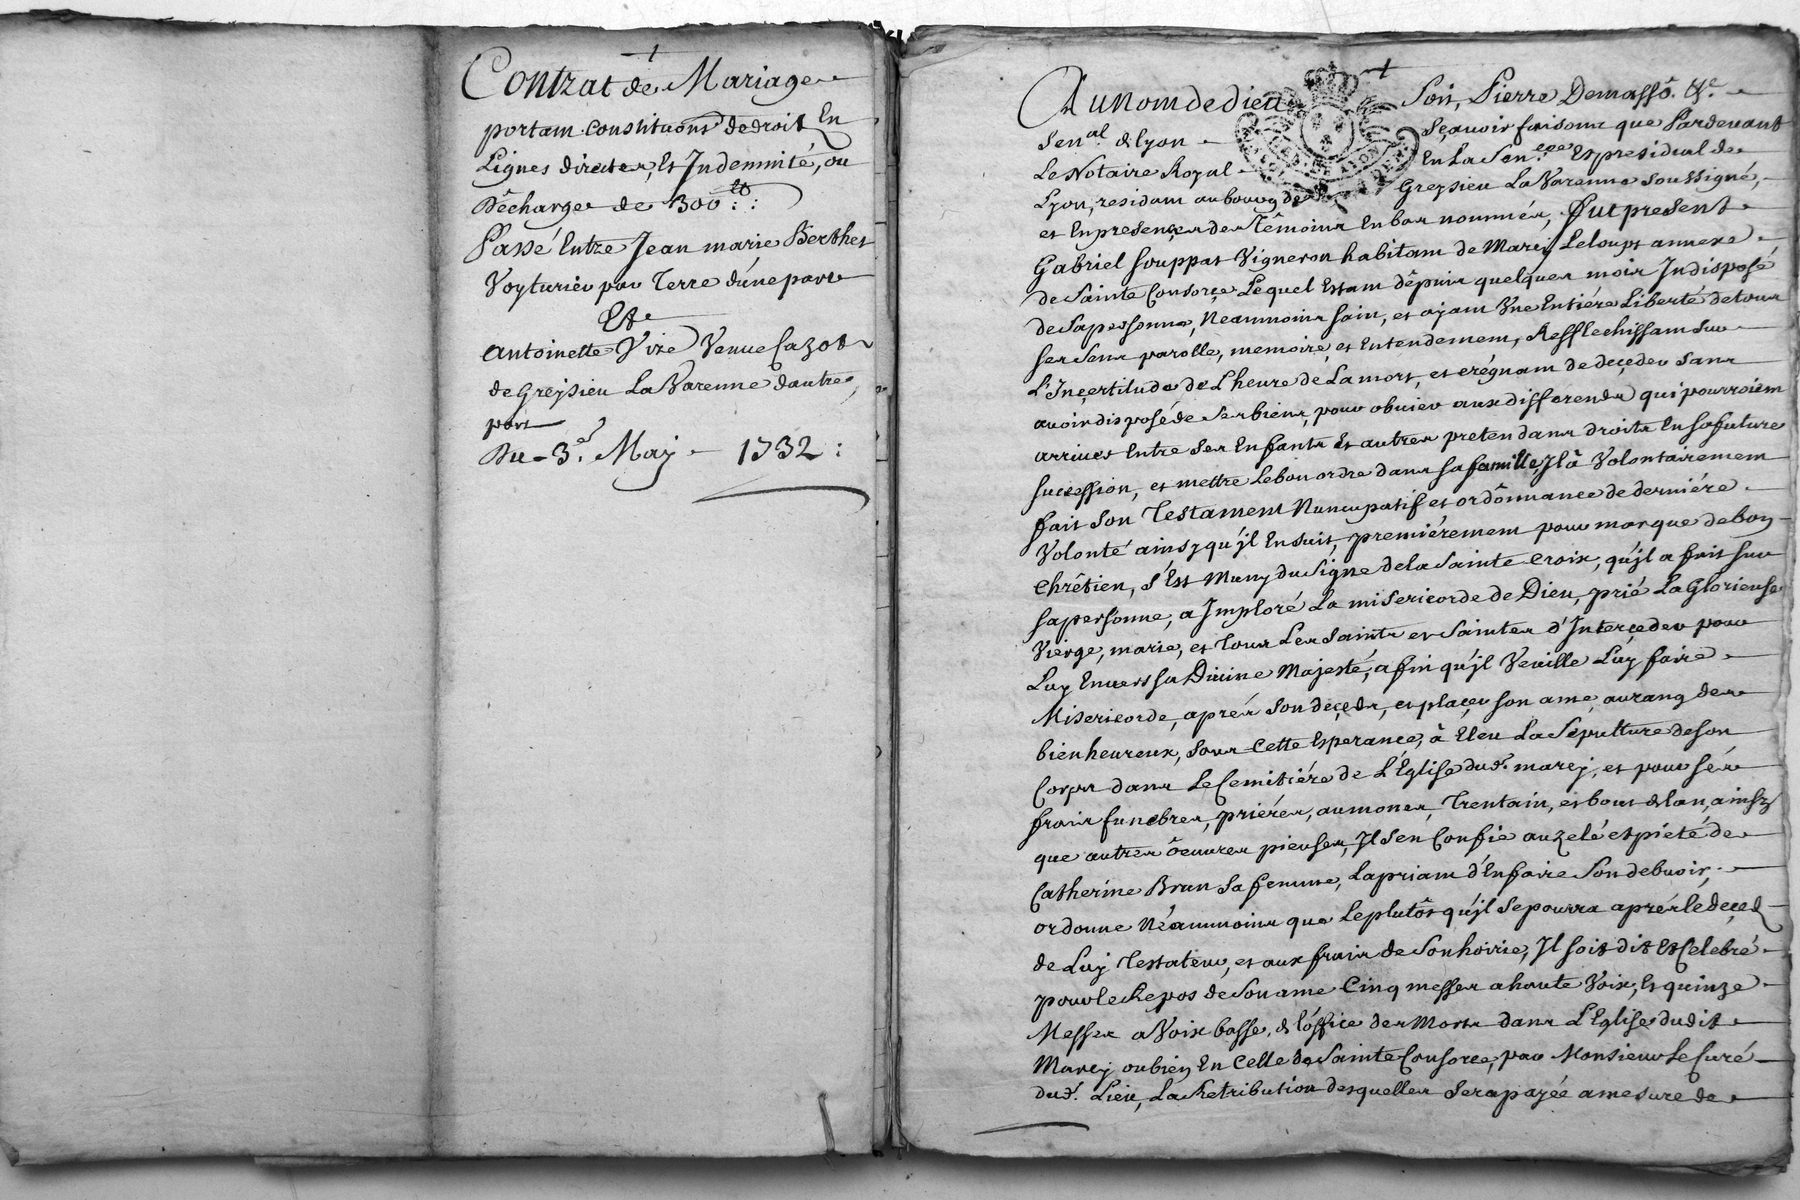 Contrat de Mariage
portant constituons de droit En
Lignes directes, Et Indemnité, ou
Dêcharge de 300 ₶ : :
Passé Entre Jean marie Berthet
Voyturier par Terre d'une part
Et
Antoinette Vixé Veuve Cazot
de Greysieu La Varenne dautre,
part
Du 3e. May 1732 :
Au Nom de dieu Soit, Pierre Demassô. &c.
Senal. de lyon Sçavoir faisons que Pardevant
Le Notaire Royal En La Senée. Et presidial de
Lyon, residant au bourg de Greysieu La Varenne Soussigné,
et En presences des Têmoins En bas nommés, fut present
Gabriel Souppat Vigneron habitant de Marcy Le loup annexe
de Sainte Consorçe Lequel Estant dêpuis quelques mois Indisposé
de Sa personne, Neammoins Sain, et ayant Une Entiére Liberté de tous
ses Sens parolle, memoire, et Entendement, Refflechissant sur
L'Inçertitude de L'heure de La mort, et crégnant de deçeder Sans
avoir disposé de Ses biens, pour obvier aux differends qui pourroient
arriver Entre Ses Enfants Et autres pretendans droits En Sa future
Succession, et mettre Le bon ordre dans Sa famille, Jl à Volontairement
fait Son Testament Nuncupatif et ordonnance de derniére
Volonté ainsy qu'jl Ensuit, premiérement pour marque de bon
Chrêtien, s'Est Muny du Signe de la Sainte Croix, qu'jl a fait sur
Sa personne, a Imploré La misericorde de Dieu, prié La Glorieuse
Viérge, marie, et Tous Les Saints et Saintes d'Interçeder pour
Luy Envers Sa Divine Majesté, afin qu'jl Veuille Luy faire
Misericorde, aprés Son deçeds, et plaçer Son ame au rang des
bienheureux, Sous Cette Esperance, à Eleu La Sépulture de Son
Corps dans Le Cemitiére de L'Église dud. marcy, et pour sés
frais funebres, priéres, aumones, Trentain, et bout de lan, ainsy
que autres oeuvres pieuses, Jl s'en Confie au zelé et piété de
Catherine Brun Sa femme, La priant d'En faire Son debvoir,
ordonne Néammoins que Le plutôt qu'jl Se pourra aprés le deçeds
de Luy Testateur, et aux frais de Son hoirie, Jl Soit dit Et Celebré
pour le Repos de Son ame Cinq messes a haute Voix, Et quinze
Messes a Voix basse, de l'office des Morts dans L'Eglise dudit
Marcy ou bien En Celle de Sainte Consorce, par Monsieur Le Curé
dud. Lieu, La Retribution desquelles Sera payée a mesure de